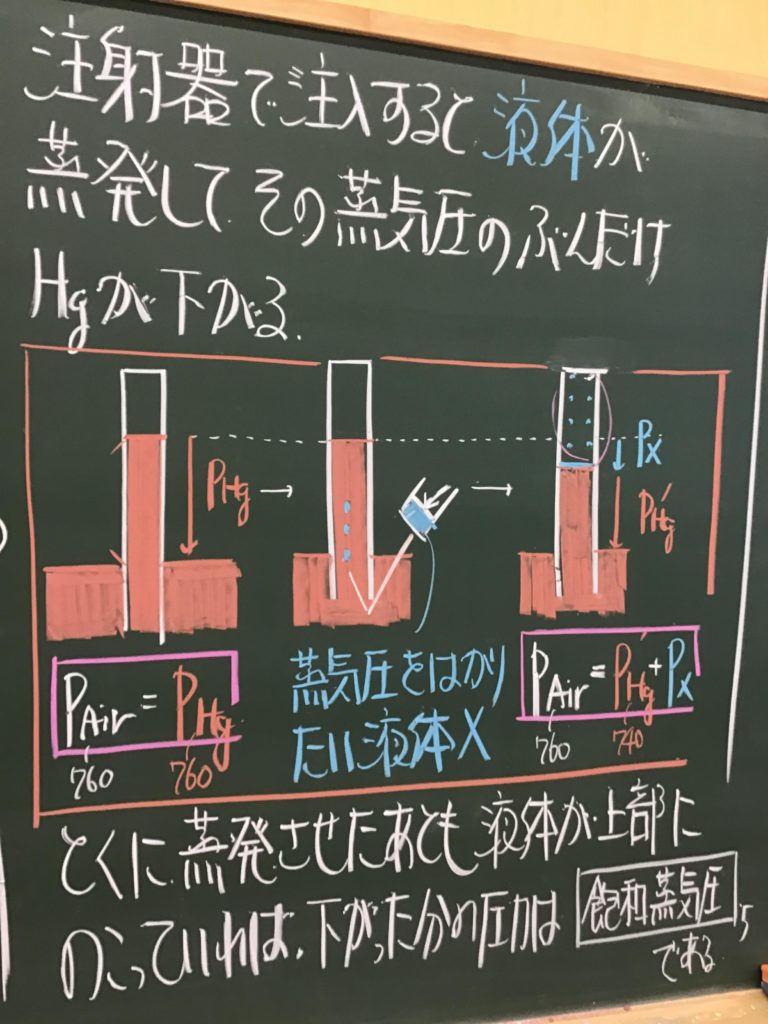 注射器で注入すると液体が
蒸発してその蒸気圧のぶんだけ
Hgが下がる.
PHg
Px
P'Hg
PAir = PHg
760 760
蒸気圧をはかり
たい液体X
PAir = P'Hg + Px
760 740
とくに蒸発させたあとも液体が上部に
のこっていれば、下がったぶんの圧力は 飽和蒸気圧
である